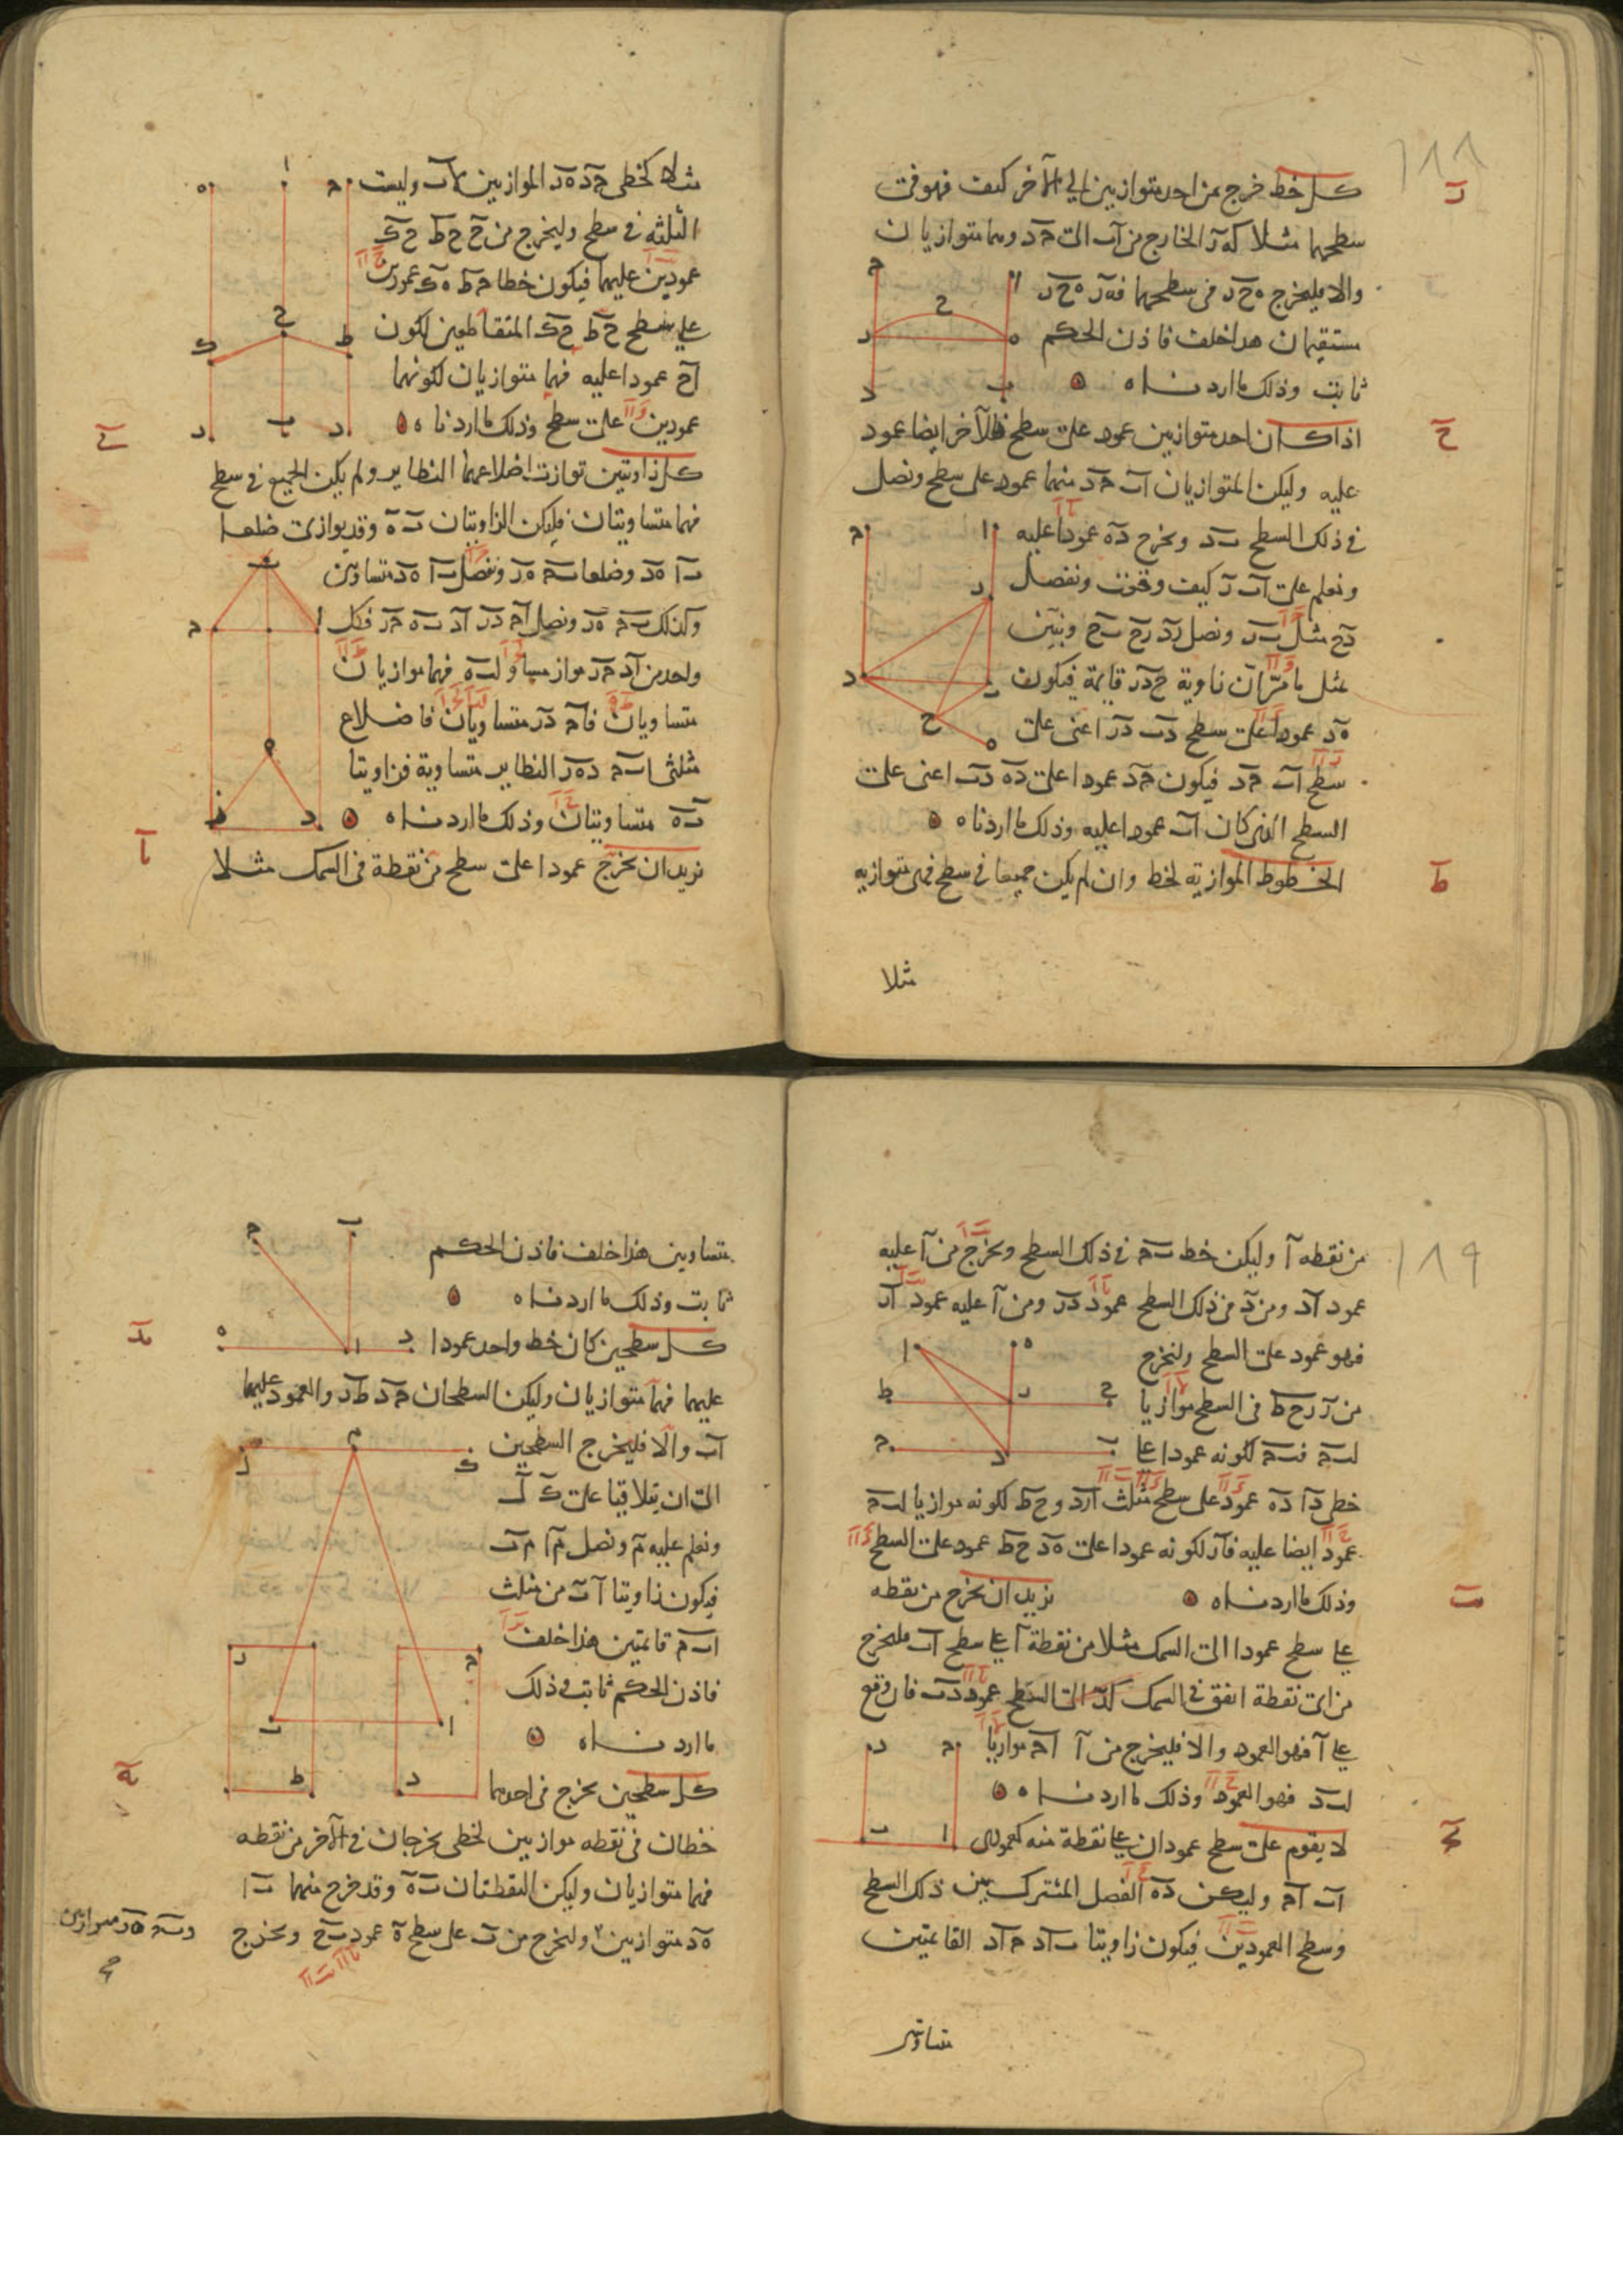 ١٨٨
ز
كل خط خرج من احد متوازيين الى الآخر كيف فهو فى
سطحهما مثلا كه ز الخارج من اب الى حد وهما متوازيان
والا فليخرج ه ح ز فى سطحهما فه ز ه ح ز
مستقيمان هذا خلف فاذن الحكم
ثابت وذلك ما اردناه
ح
اذا كان احد متوازيين عمود على سطح فالآخر ايضا عمود
عليه وليكن المتوازيان اب حد منهما عمود على سطح ونصل
فى ذلك السطح ب د ونخرج ده عمودا عليه
ونعلم على اب ز كيف وقعت ونفصل
دح مثل ب ز ونصل زد زح ب ح ونبين
بمثل ما مر ان زاوية ح د ز قايمة فيكون
ه د عمودا على سطح دب دز اعنى على
سطح اب حد فيكون حد عمودا على ده دب اعنى على
السطح الذى كان اب عمودا عليه وذلك ما اردناه
ط
الخطوط الموازية لخط وان لم يكن جميعا فى سطح فهى متوازيه
مثلا
مثلا كخطى حد ه ز الموازيين لاب وليست
الثلثه فى سطح وليخرج من ح ح ط ح ك
عمودين عليهما فيكون خطا ح ط ه ك عمودين
على سطح ح ط ح ك المتقاطعين لكون
اح عمودا عليه فهما متوازيان لكونهما
عمودين على سطح وذلك ما اردناه
ى
كل زاويتين توازت اضلاعهما النظاير ولم يكن الجميع فى سطح
فهما متساويتان فليكن الزاويتان ب ه وقد يوازى ضلعا
ب ا ه د وضلعا ب ح ه ز ونفصل ب ا ه د متساويين
وكذلك ب ح ه ز ونصل اح دز اد ب ه ح ز فكل
واحد من اد ح ز مواز ومساو لب ه فهما موازيان
متساويان فاح دز متساويان فاضلاع
مثلثى اب ح ده ز النظاير متساوية فزاويتا
ب ه متساويتان وذلك ما اردناه
يا
نريد ان نخرج عمودا على سطح من نقطة فى السمك مثلا
١٨٩
من نقطه ا وليكن خط ب ح فى ذلك السطح ونخرج من ا عليه
عمود اد ومن د فى ذلك السطح عمود دز ومن ا عليه عمود از
فهو عمود على السطح ولنخرج
من ز زح ط فى السطح موازيا
لب ح فب ح لكونه عمودا على
خطى دا ده عمود على سطح مثلث ازد وح ط لكونه موازيا لب ح
عمود ايضا عليه فاز لكونه عمودا على ه د ح ط عمود على السطح
وذلك ما اردناه
يب
نريد ان نخرج من نقطه
على سطح عمودا الى السمك مثلا من نقطة ا على سطح اب فليخرج
من اى نقطة اتفق فى السمك كد الى السطح عمود دب فان وقع
على ا فهو العمود والا فليخرج من ا اح موازيا
لب د فهو العمود وذلك ما اردناه
يج
لا يقوم على سطح عمودان على نقطة منه كعمودى
اب اح وليكن ده الفصل المشترك بين ذلك السطح
وسطح العمودين فيكون زاويتا ب اد ح اد القائمتين
متساويتين
متساويين هذا خلف فاذن الحكم
ثابت وذلك ما اردناه
يد
كل سطحين كان خط واحد عمودا
عليهما فهما متوازيان وليكن السطحان حد ط ز والعمود عليهما
اب والا فليخرج السطحين
الى ان يتلاقيا على ك ل
ونعلم عليه م ونصل م ا م ب
فيكون زاويتا ا ب من مثلث
اب م قائمتين هذا خلف
فاذن الحكم ثابت وذلك
ما اردناه
يه
كل سطحين يخرج فى احدهما
خطان من نقطه موازيين لخطين يخرجان فى الآخر من نقطه
فهما متوازيان وليكن النقطتان ب ه وقد خرج منهما ب ا
ه د متوازيين ولنخرج من ب على سطح ه عمود ب ح ونخرج
وب ح ه ز متوازيين
صح